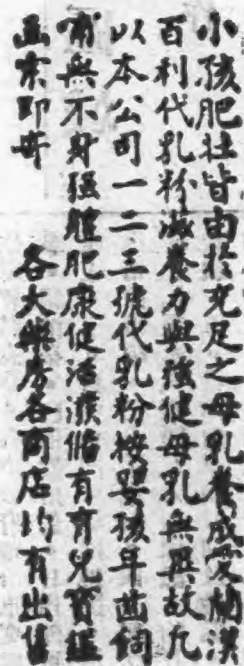 小孩肥壯皆由於充足之母乳養成愛蘭漢
百利代乳粉滋養力與強健母乳無異故凡
以本公司一二三號代乳粉按嬰孩年齒飼
哺無不身强體肥康健活潑備有育兒寶鑑
函索即寄　各大藥房各商店均有出售